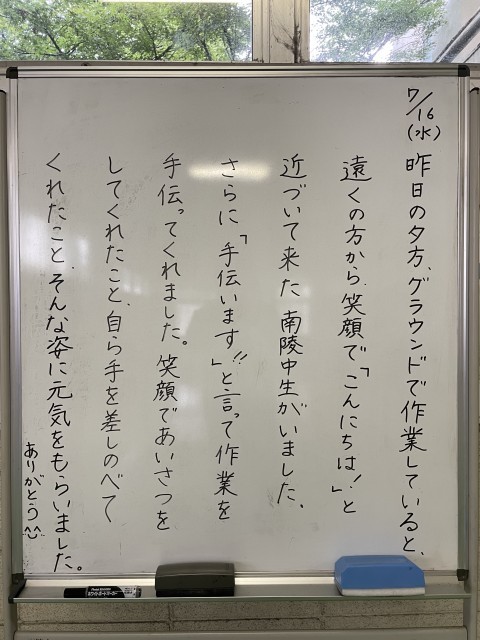 7/16(水)
昨日の夕方、グラウンドで作業していると、
遠くの方から、笑顔で「こんにちは!」と
近づいて来た南陵中生がいました、
さらに「手伝います!!」と言って作業を
手伝ってくれました。笑顔であいさつを
してくれたこと、自ら手を差しのべて
くれたこと、そんな姿に元気をもらいました。
ありがとう